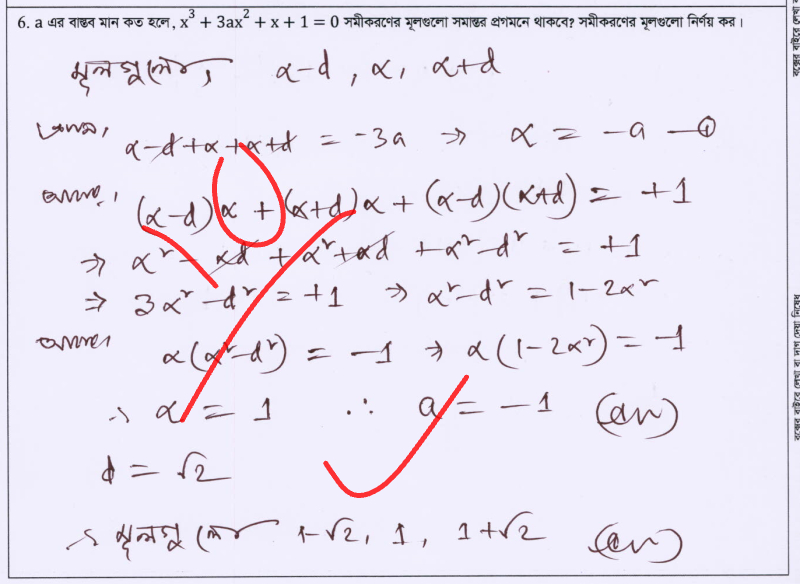 6. a এর বাস্তব মান কত হলে, x³ + 3ax² + x + 1 = 0 সমীকরণের মূলগুলো সমান্তর প্রগমনে থাকবে? সমীকরণের মূলগুলো নির্ণয় কর।
মূলগুলো, α-d, α, α+d
α-d+α+α+d = -3a ⇒ α = -a —①
আবার, (α-d)α + (α+d)α + (α-d)(α+d) = +1
⇒ α² - αd + α² + αd + α² - d² = +1
⇒ 3α² - d² = +1 ⇒ α² - d² = 1 - 2α²
আবার α(α² - d²) = -1 ⇒ α(1 - 2α²) = -1
∴ α = 1 ∴ a = -1 (an)
d = √2
∴ মূলগুলো 1-√2, 1, 1+√2 (an)
বক্সের বাইরে লেখা বা দাগ দেয়া নিষেধ